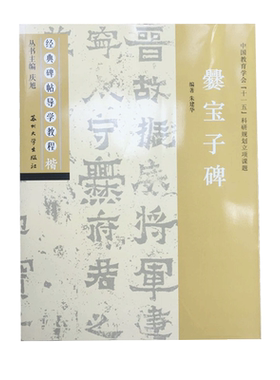 中国教育学会「十一五」科研规划立项课题
爨宝子碑
编著 朱建华
晋故振
威将军建
宁太守爨
经典碑帖导学教程 楷
丛书主编 庆旭
苏州大学出版社